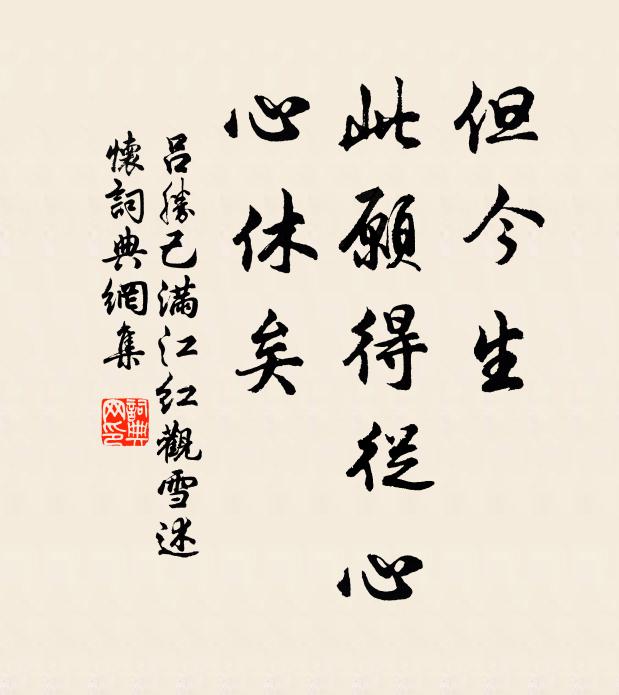 但今生
此願得從心
心休矣
呂勝己满江红觀雪述
懷詞典網集
詞典
网印